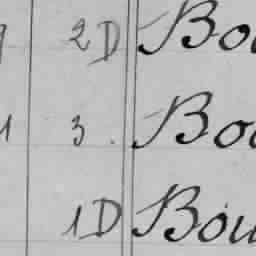 2D Bo
1 3. Bo
1D Bou